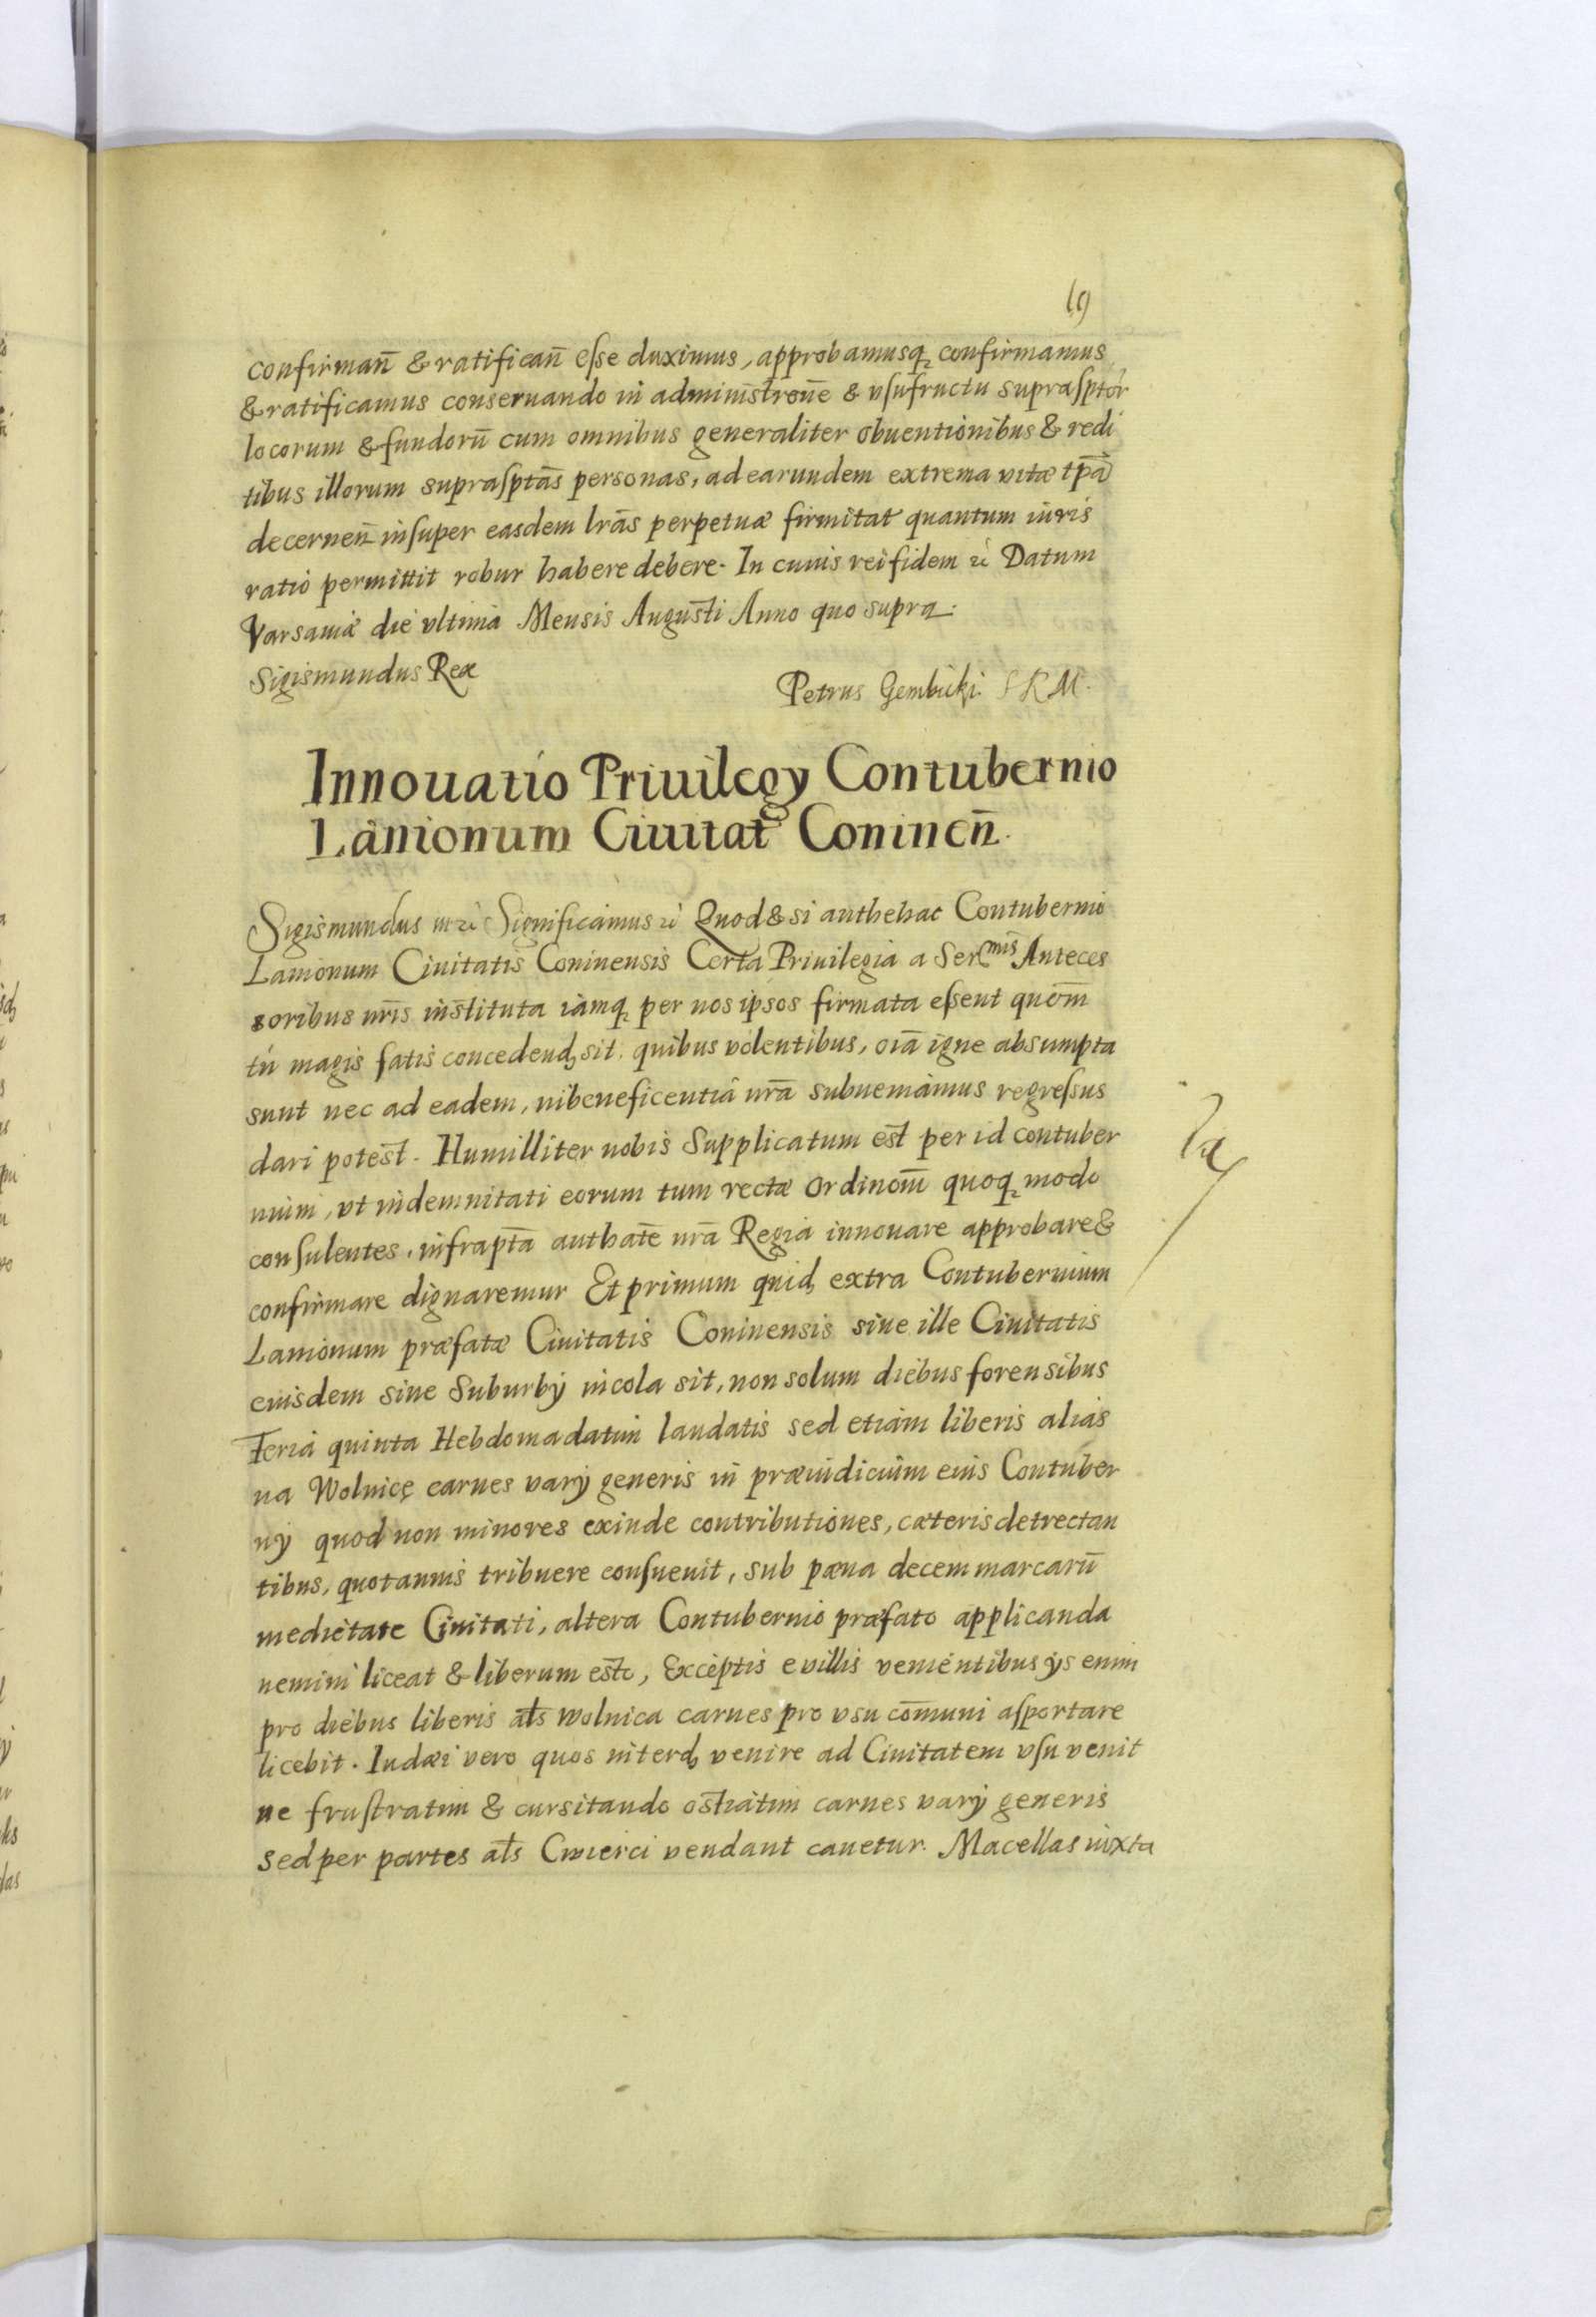 19
confirman̄ & ratifican̄ esse duximus, approbamusq confirmamus
& ratificamus conseruando in administrōne & vsufructu suprasptōr
locorum & fundorū cum omnibus generaliter obuentionibus & redi
tibus illorum suprasptās personas, ad earundem extrema vitæ tpā
decernen̄ insuper easdem lrās perpetuæ firmitat quantum iuris
ratio permittit robur habere debere. In cuius rei fidem &c Datum
Varsauiæ die vltima Mensis Augusti Anno quo supra.
Sigismundus Rex
Petrus Gembicki S R M.
Innouatio Priuilegÿ Contubernio
Lanionum Ciuitat Coninen̄.
Sigismundus III &c Significamus &c Quod & si anthehac Contubernio
Lanionum Ciuitatis Coninensis Certa Priuilegia a Ser^mis Anteces
soribus nr̄is instituta iamq per nos ipsos firmata essent quom̄
tū magis fatis concedend sit, quibus volentibus, oīa igne absumpta
sunt nec ad eadem, ni beneficentiâ nr̄a subueniamus regressus
dari potest. Humilliter nobis Supplicatum est per id contuber
nium, vt indemnitati eorum tum rectæ ordinom̄ quoq modo
consulentes, infraptā authatē nr̄a Regia innouare approbare &
confirmare dignaremur Et primum quid extra Contubernium
Lanionum præfatæ Ciuitatis Coninensis siue ille Ciuitatis
eiusdem siue Suburbÿ incola sit, non solum diebus forensibus
Feria quinta Hebdomadatim laudatis sed etiam liberis alias
na Wolnicę carnes varÿ generis in præiudicium eius Contuber
nÿ quod non minores exinde contributiones, cæteris detrectan
tibus, quotannis tribuere consueuit, sub pæna decem marcarū
medietate Ciuitati, altera Contubernio præfato applicanda
nemini liceat & liberum esto, Exceptis e villis venientibus ÿs enim
pro diebus liberis als Wolnica carnes pro vsu cōmuni asportare
licebit. Iudæi vero quos interd venire ad Ciuitatem vsu venit
ne frustratim & cursitando ostiatim carnes varÿ generis
sed per partes als Cwierci vendant cauetur. Macellas iuxta